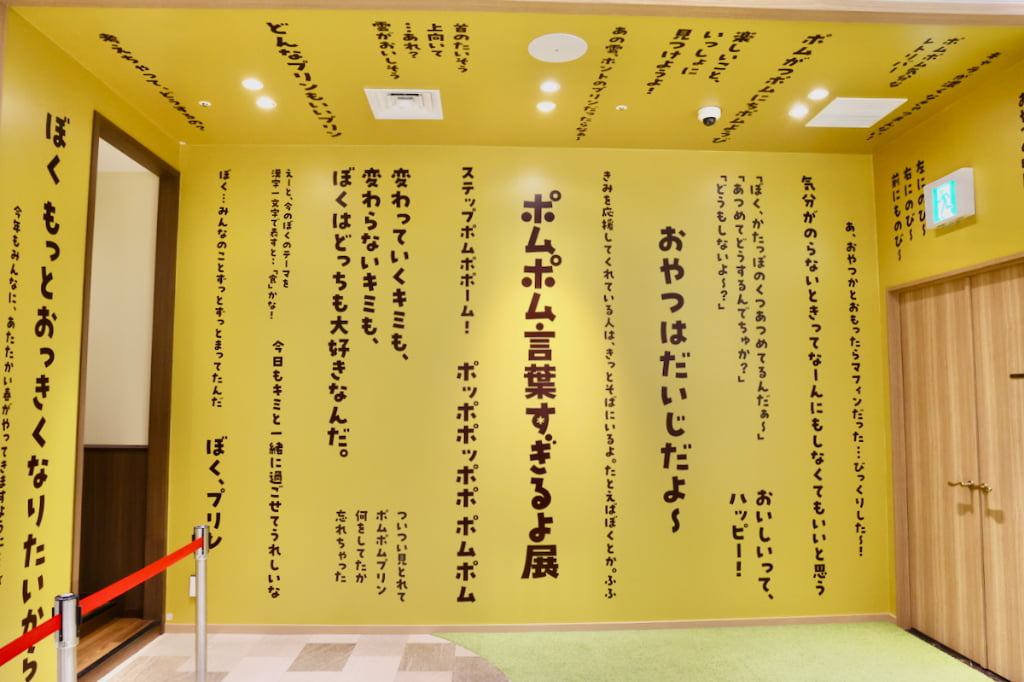 左にのび〜
右にのび〜
前にものび〜
あ、おやつかとおもったらマフィンだった…びっくりした〜!
気分がのらないときってなーんにもしなくてもいいと思う
「ぼく、かたっぽのくつあつめてるんだぁ〜」
「あつめてどうするんでちゅか?」
「どうもしないよ〜?」
おいしいって、
ハッピー!
おやつはだいじだよ〜
きみを応援してくれている人は、きっとそばにいるよ。たとえばぼくとか。ふふ
ポムポム言葉すぎるよ展
ステップポムポポーム! ポッポポッポポポムポム
変わっていくキミも、
変わらないキミも、
ぼくはどっちも大好きなんだ。
ついつい見とれて
ポムポムプリン
何をしてたか
忘れちゃった
えーと、今のぼくのテーマを
漢字一文字で表すと…「食」かな!
今日もキミと一緒に過ごせてうれしいな
ぼく…みんなのことずっとずっとまってたんだ
ぼく、プリン
楽しいこと、
いっしょに
見つけようよ?
首のたいそう
上向いて
…あれ?
雲がおいしそう
どんなプリン
ぼく もっとおっきくなりたいから
今年もみんなに、あたたかい春がやってきますように